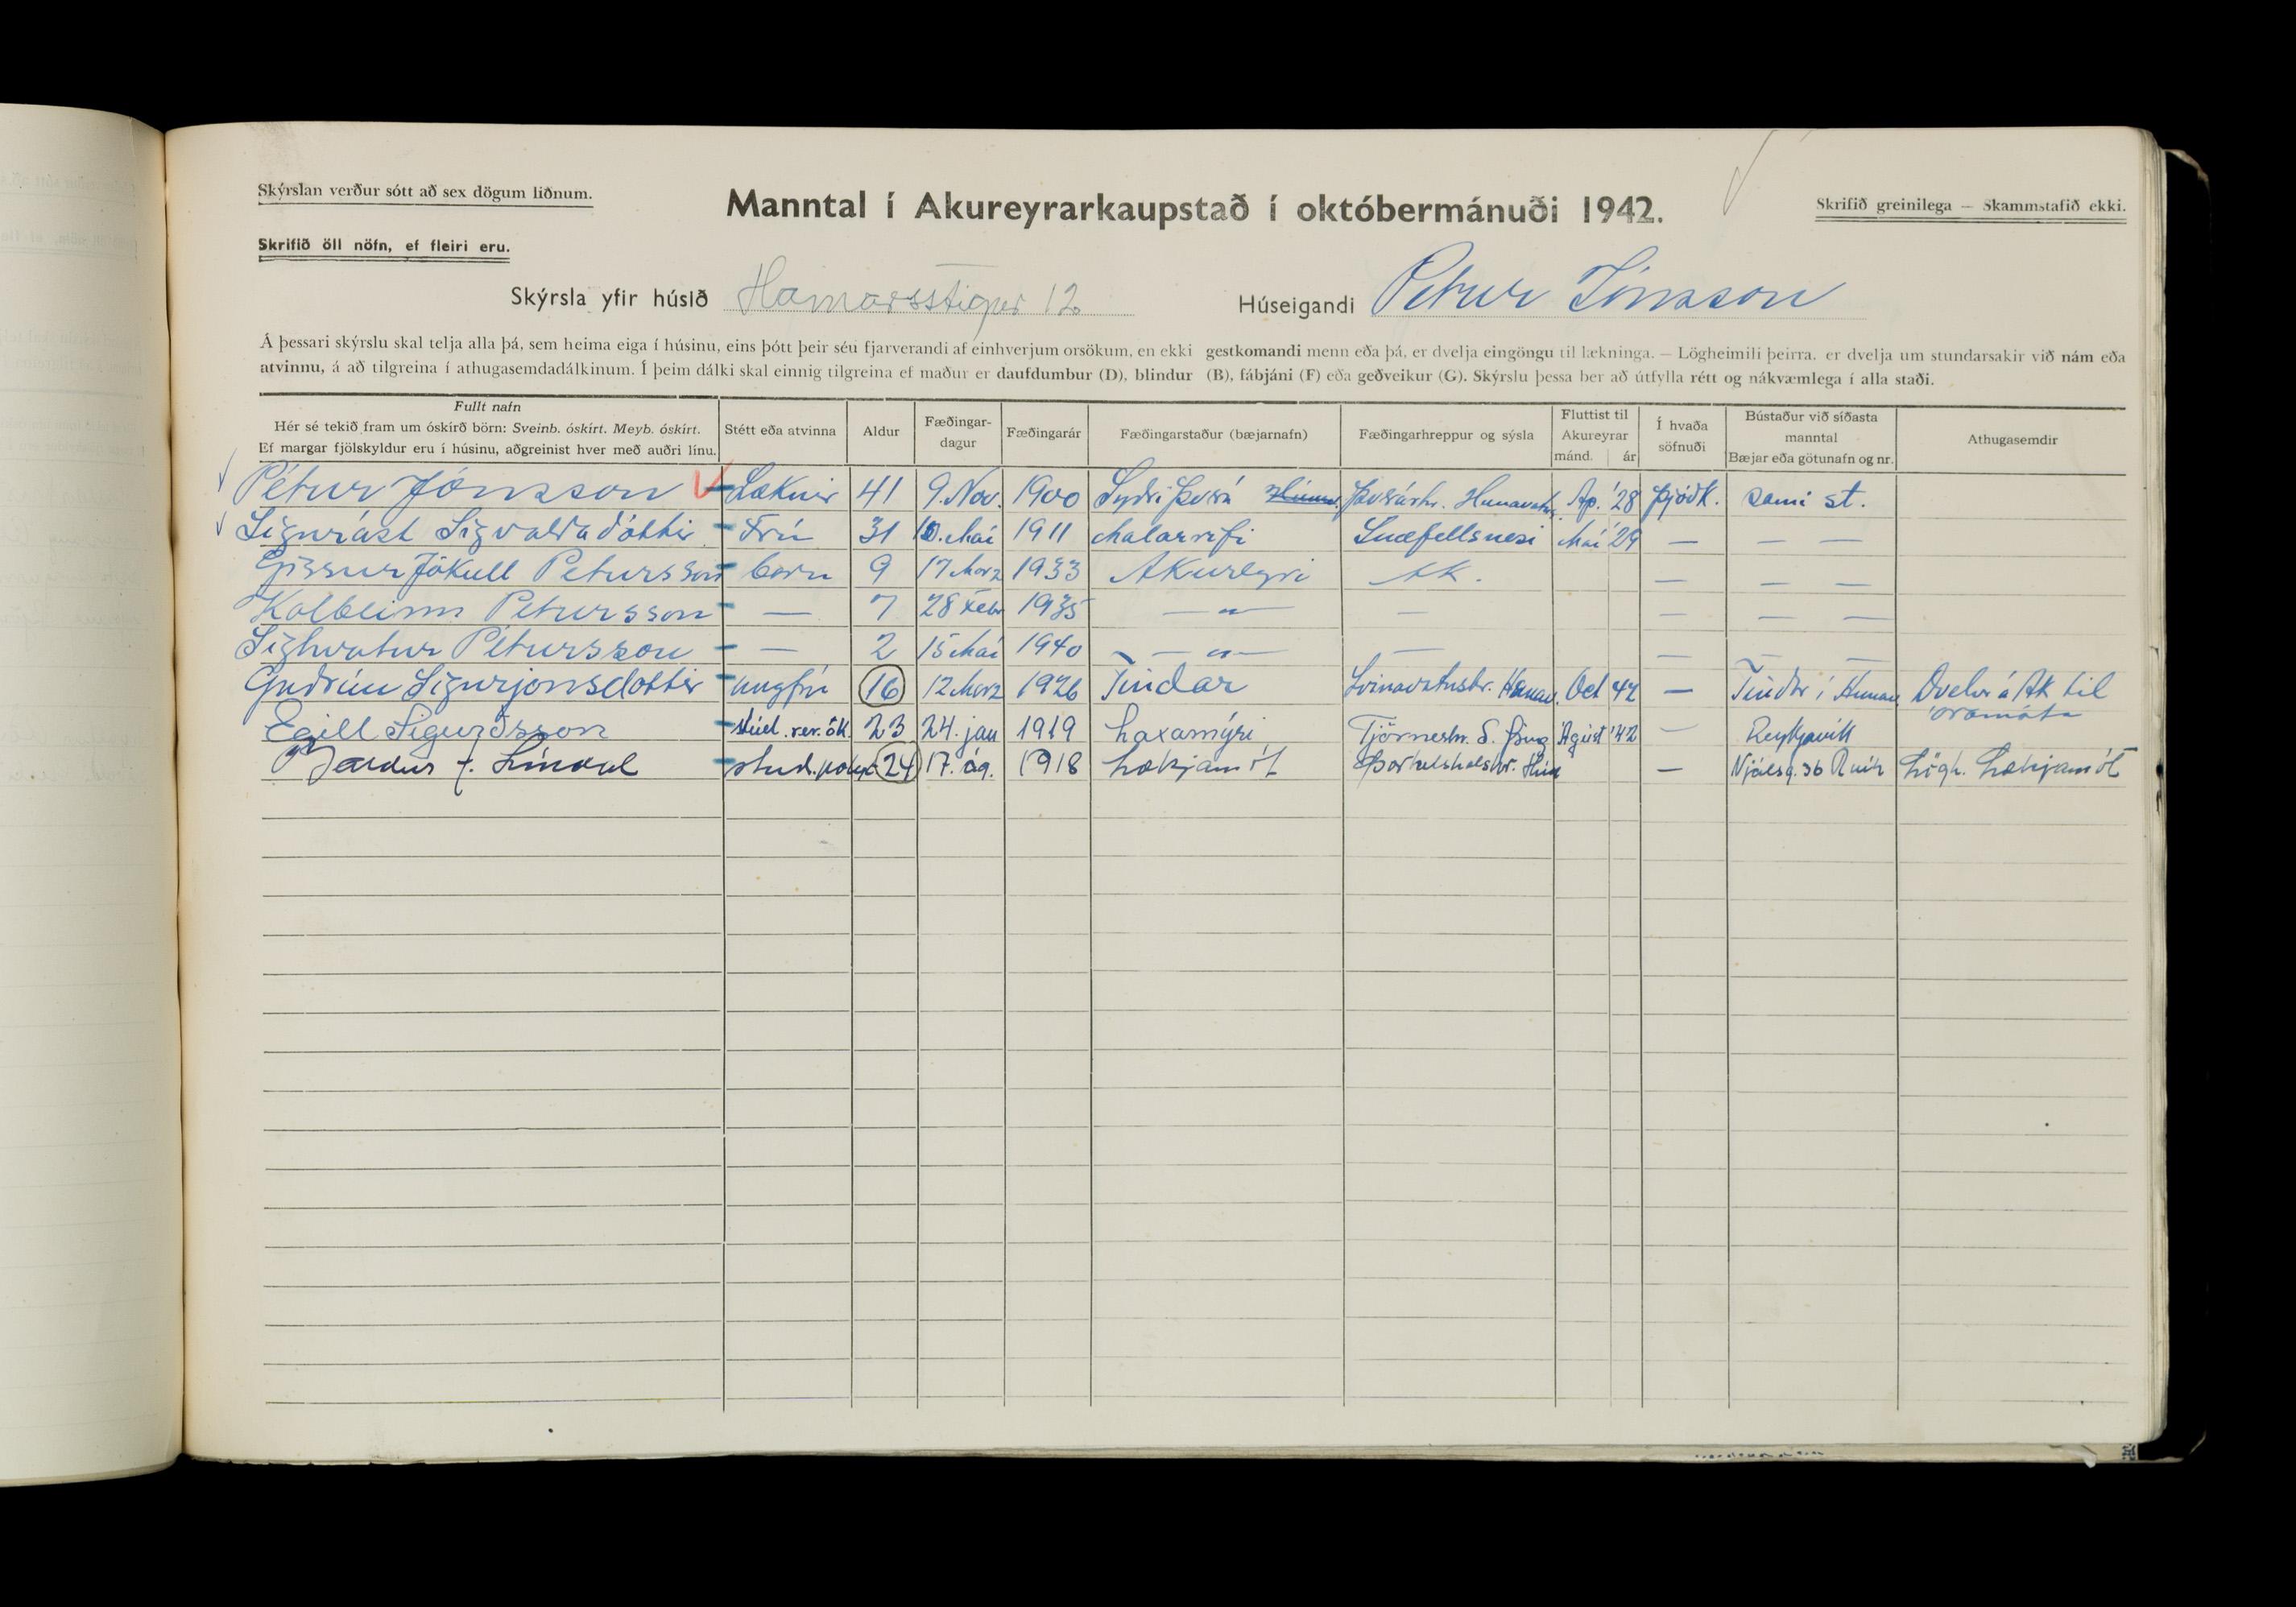 Skýrslan verður sótt að sex dögum liðnum.
Manntal í Akureyrarkaupstað í októbermánuði 1942.
Skrifið greinilega — Skammstafið ekki.
Skrifið öll nöfn, ef fleiri eru.
Skýrsla yfir húsið Hamarsstígur 12 Húseigandi Pétur Jónsson
Á þessari skýrslu skal telja alla þá, sem heima eiga í húsinu, eins þótt þeir séu fjarverandi af einhverjum orsökum, en ekki gestkomandi menn eða þá, er dvelja eingöngu til lækninga. — Lögheimili þeirra. er dvelja um stundarsakir við nám eða
atvinnu, á að tilgreina í athugasemdadálkinum. Í þeim dálki skal einnig tilgreina ef maður er daufdumbur (D), blindur (B), fábjáni (F) eða geðveikur (G). Skýrslu þessa ber að útfylla rétt og nákvæmlega í alla staði.
Fullt nafn
Hér sé tekið fram um óskírð börn: Sveinb. óskírt. Meyb. óskírt.
Ef margar fjölskyldur eru í húsinu, aðgreinist hver með auðri línu.
Stétt eða atvinna
Aldur
Fæðingar-
dagur
Fæðingarár
Fæðingarstaður (bæjarnafn)
Fæðingarhreppur og sýsla
Fluttist til
Akureyrar
mánd. ár
Í hvaða
söfnuði
Bústaður við síðasta
manntal
Bæjar eða götunafn og nr.
Athugasemdir
Pétur Jónsson Læknir 41 9. Nov. 1900 Syðri Þverá Þverárhr. Hunavatns. Ap. '28 Þjóðk. sami st.
Sigurást Sigvaldadóttir Frú 31 10. Mai 1911 Malarrifi Snæfellsnesi Mai '29 — — —
Gissur Jökull Petursson börn 9 17 Marz 1933 Akureyri Ak. — — —
Kolbeinn Petursson — 7 28 Febr 1935 — „ — — — — —
Sighvatur Pétursson — 2 15 Mai 1940 — „ — — — — —
Guðrún Sigurjonsdottir ungfrú 16 12 Marz 1926 Tindar Svinavatnshr. Húnav. Oct 42 — Tindar í Hunav. Dvelur á Ak til
Egill Sigurðsson stúd. rer. ök. 23 24. jan 1919 Laxamýri Tjörneshr. S. Þing Ágúst '42 — Reykjavík
J. Líndal stud. 24 17. ág. 1918 Lækjamót Þorkelshólshr. Hún — Njálsg. 36 Rvík Lögh. Lækjamót